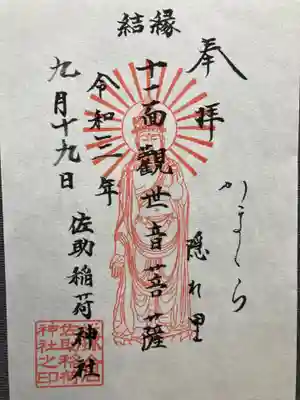 結縁
奉拝
かまくら
隠れ里
十一面観世音菩薩
令和二年
九月十九日
佐助稲荷神社
鎌倉
佐助稲荷
神社之印